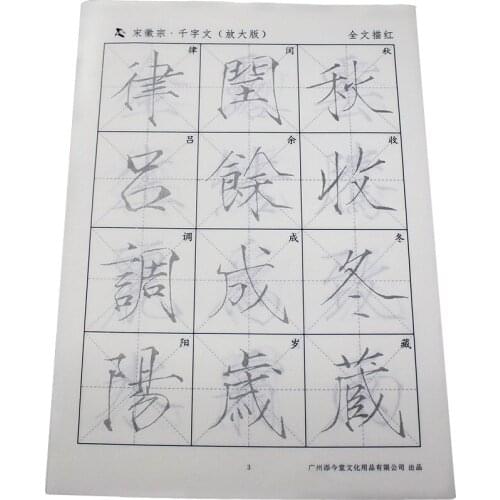 宋徽宗·千字文（放大版）
全文描红
秋收冬藏
秋收冬藏
闰余成岁
閏餘成歲
律吕调阳
律呂調陽
3
广州添今堂文化用品有限公司 出品